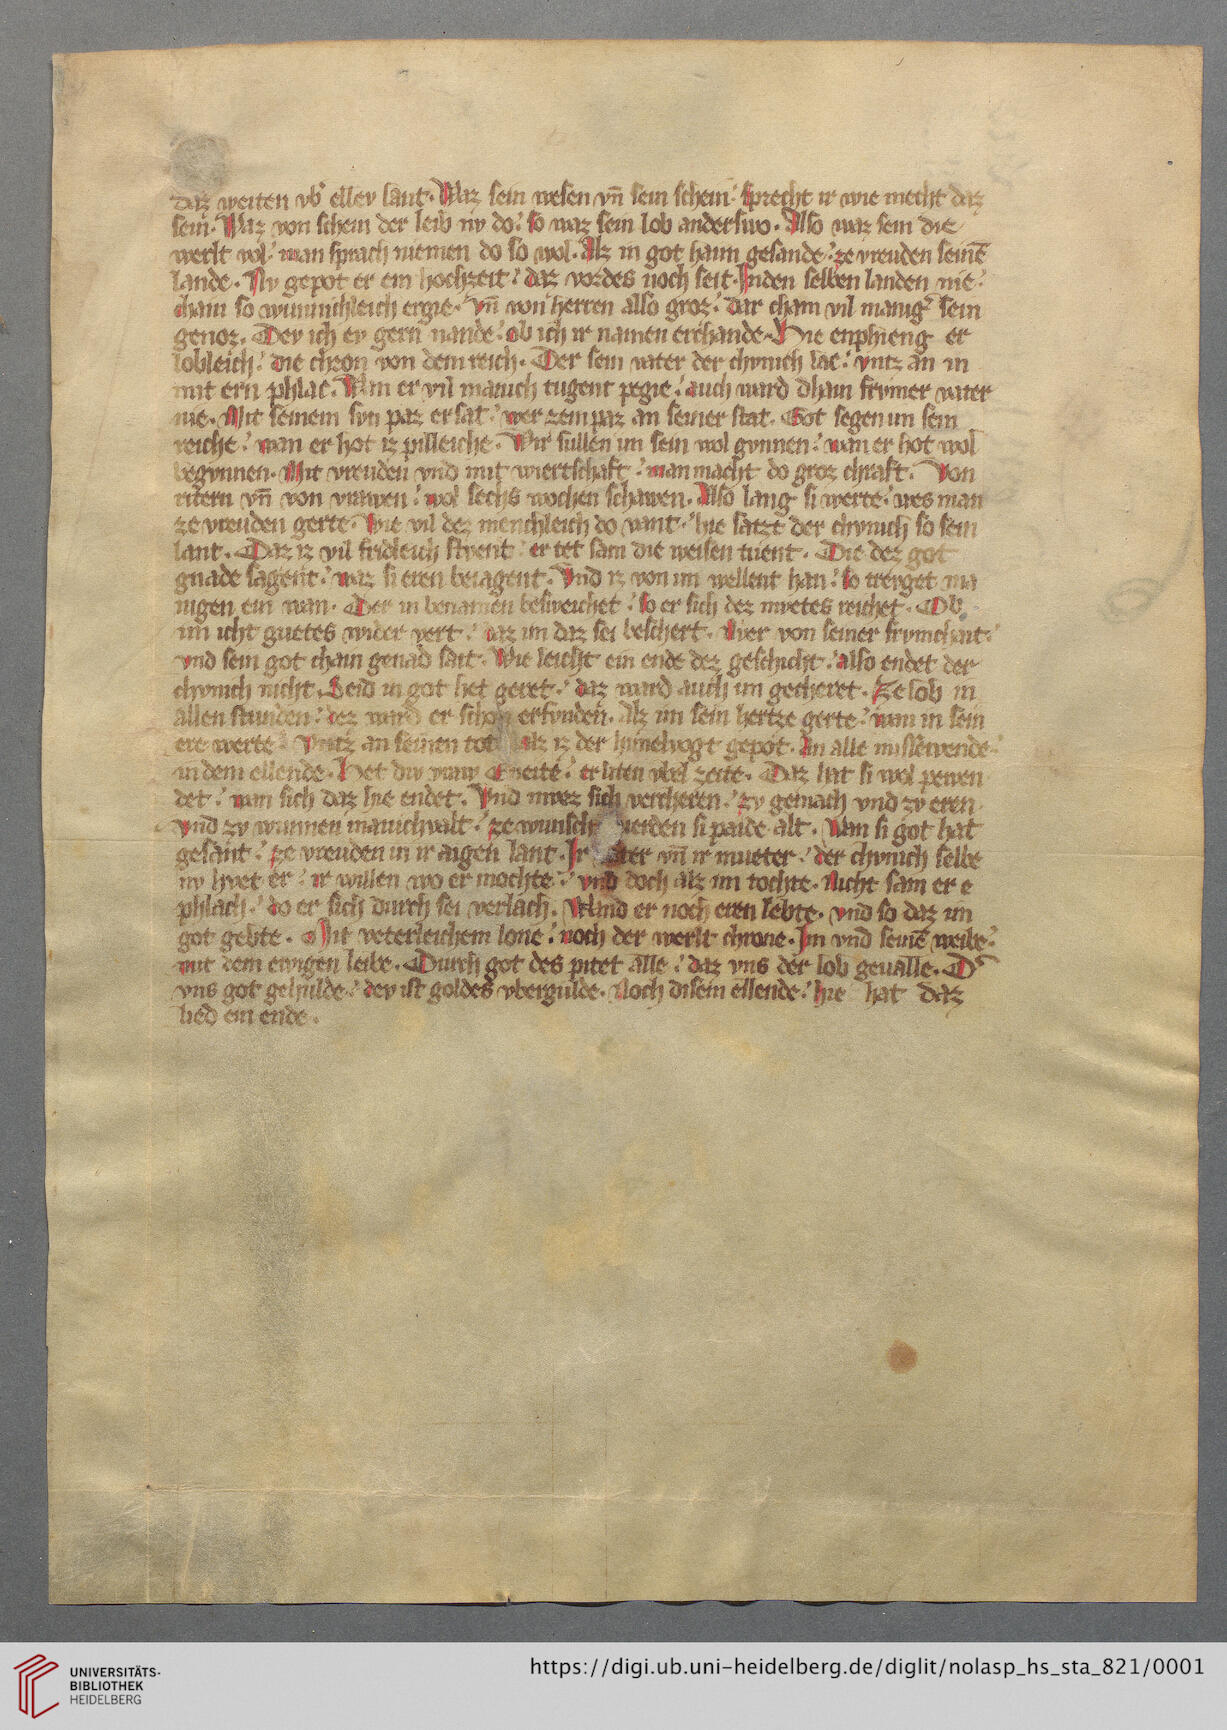 Daz weiten vb ellev lant. Waz sein wesen vn̄ sein schein. sprecht ir wie mecht daz
sein. Waz von schein der leib ny do. so waz sein lob anderswo. Also waz sein die
werlt vol. man sprach niemen do so wol. Alz in got haim gesande. ze vreuden seinē
lande. Ny gepot er ein hochzeit. daz vordes noch seit. Inden selben landen nie.
cham so wunnichleich ergie. vn̄ von herren also groz. dar cham vil manig sein
genoz. Dev ich ev gern nande. ob ich ir namen erchande. Hie enphieng er
lobleich. die chron von dem reich. Der sein vater der chvnich lac. vntz an in
mit ern phlac. Wan er vil manich tugent pegie. auch ward dhain frvmer vater
nie. Mit seinem svn paz ersat. wer zem paz an seiner stat. Got segen im sein
reiche. wan er hot iz pilleiche. Wir sullen im sein wol gvnnen. wan er hot wol
begvnnen. Mit vreuden vnd mit wiertschaft. man macht do groz chraft. Von
ritern vn̄ von vrawen. wol sechs wochen schawen. Also lang si werte. wes man
ze vreuden gerte. Wie vil dez menchleich do vant. hie satzt der chvnich so sein
lant. Daz iz vil fridleich stvent. er tet sam die weisen tuent. Die dez got
gnade sagent. waz si eren beiagent. Vnd iz von im wellent han. so trevget ma
nigen ein wan. Der in benamen besweichet. so er sich dez mvetes reichet. Ob
im icht guetes wider vert. daz im daz sei beschert. Nver von seiner frvmchait.
vnd sein got chain genad sait. Wie leicht ein ende dez geschicht. also endet der
chvnich nicht. Seid in got het geret. daz ward auch im gecheret. Ze lob in
allen stunden. dez ward er schon erfvnden. Alz im sein hertze gerte. wan in sein
ere werte. Vntz an seinen tot alz iz der himelvogt gepot. An alle missewende.
in dem ellende. Het div vraw Eneite. erliten vbel zeite. Daz hat si wol pewen
det. wan sich daz hie endet. Vnd mvez sich vercheren. zv gemach vnd zv eren.
vnd zv wunnen manichvalt. ze wunsch werden si paide alt. Wan si got hat
gesant. ze vreuden in ir aigen lant. Ir vater vn̄ ir mueter. der chvnich selbe
nv hvet er. ir willen wo er mochte. vnd doch alz im tochte. Nicht sam er e
phlach. do er sich durch sei verlach. Wand er noch eren lebte. vnd so daz im
got gebte. Mit veterleichem lone. noch der werlt chrone. Im vnd seinē weibe.
mit dem ewigen leibe. Durch got des pitet alle. daz vns der lob geualle. D
vns got gehulde. dev ist goldes vbergulde. Noch disem ellende. hie hat daz
lied ein ende.
UNIVERSITÄTS-
BIBLIOTHEK
HEIDELBERG
https://digi.ub.uni-heidelberg.de/diglit/nolasp_hs_sta_821/0001